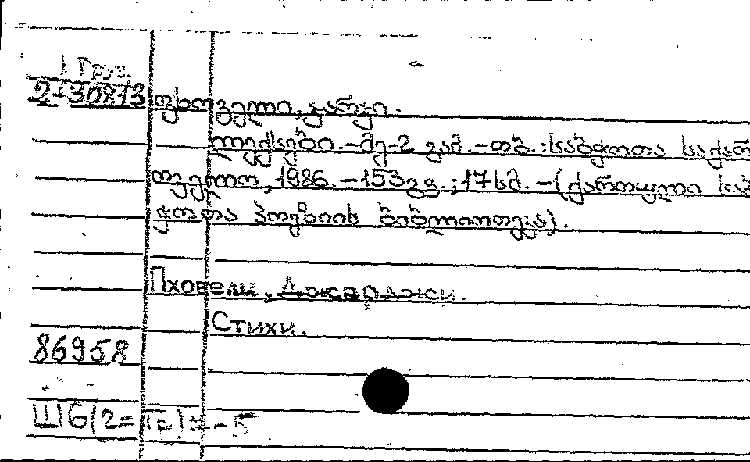 1 Груз.
2-30873 ფხოველი, ჯარჯი.
ლექსები. -მე-2 გამ. -თბ.: საბჭოთა საქარ
თველო, 1986. -153გვ.; 17სმ. -(ქართული საბ
ჭოთა პოეზიის ბიბლიოთეკა).
Пховели, Джарджи.
Стихи.
86958
Ш6(2=